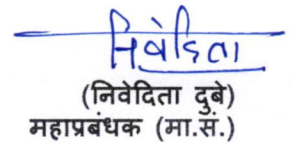 निवेदिता
(निवेदिता दुबे)
महाप्रबंधक (मा.सं.)